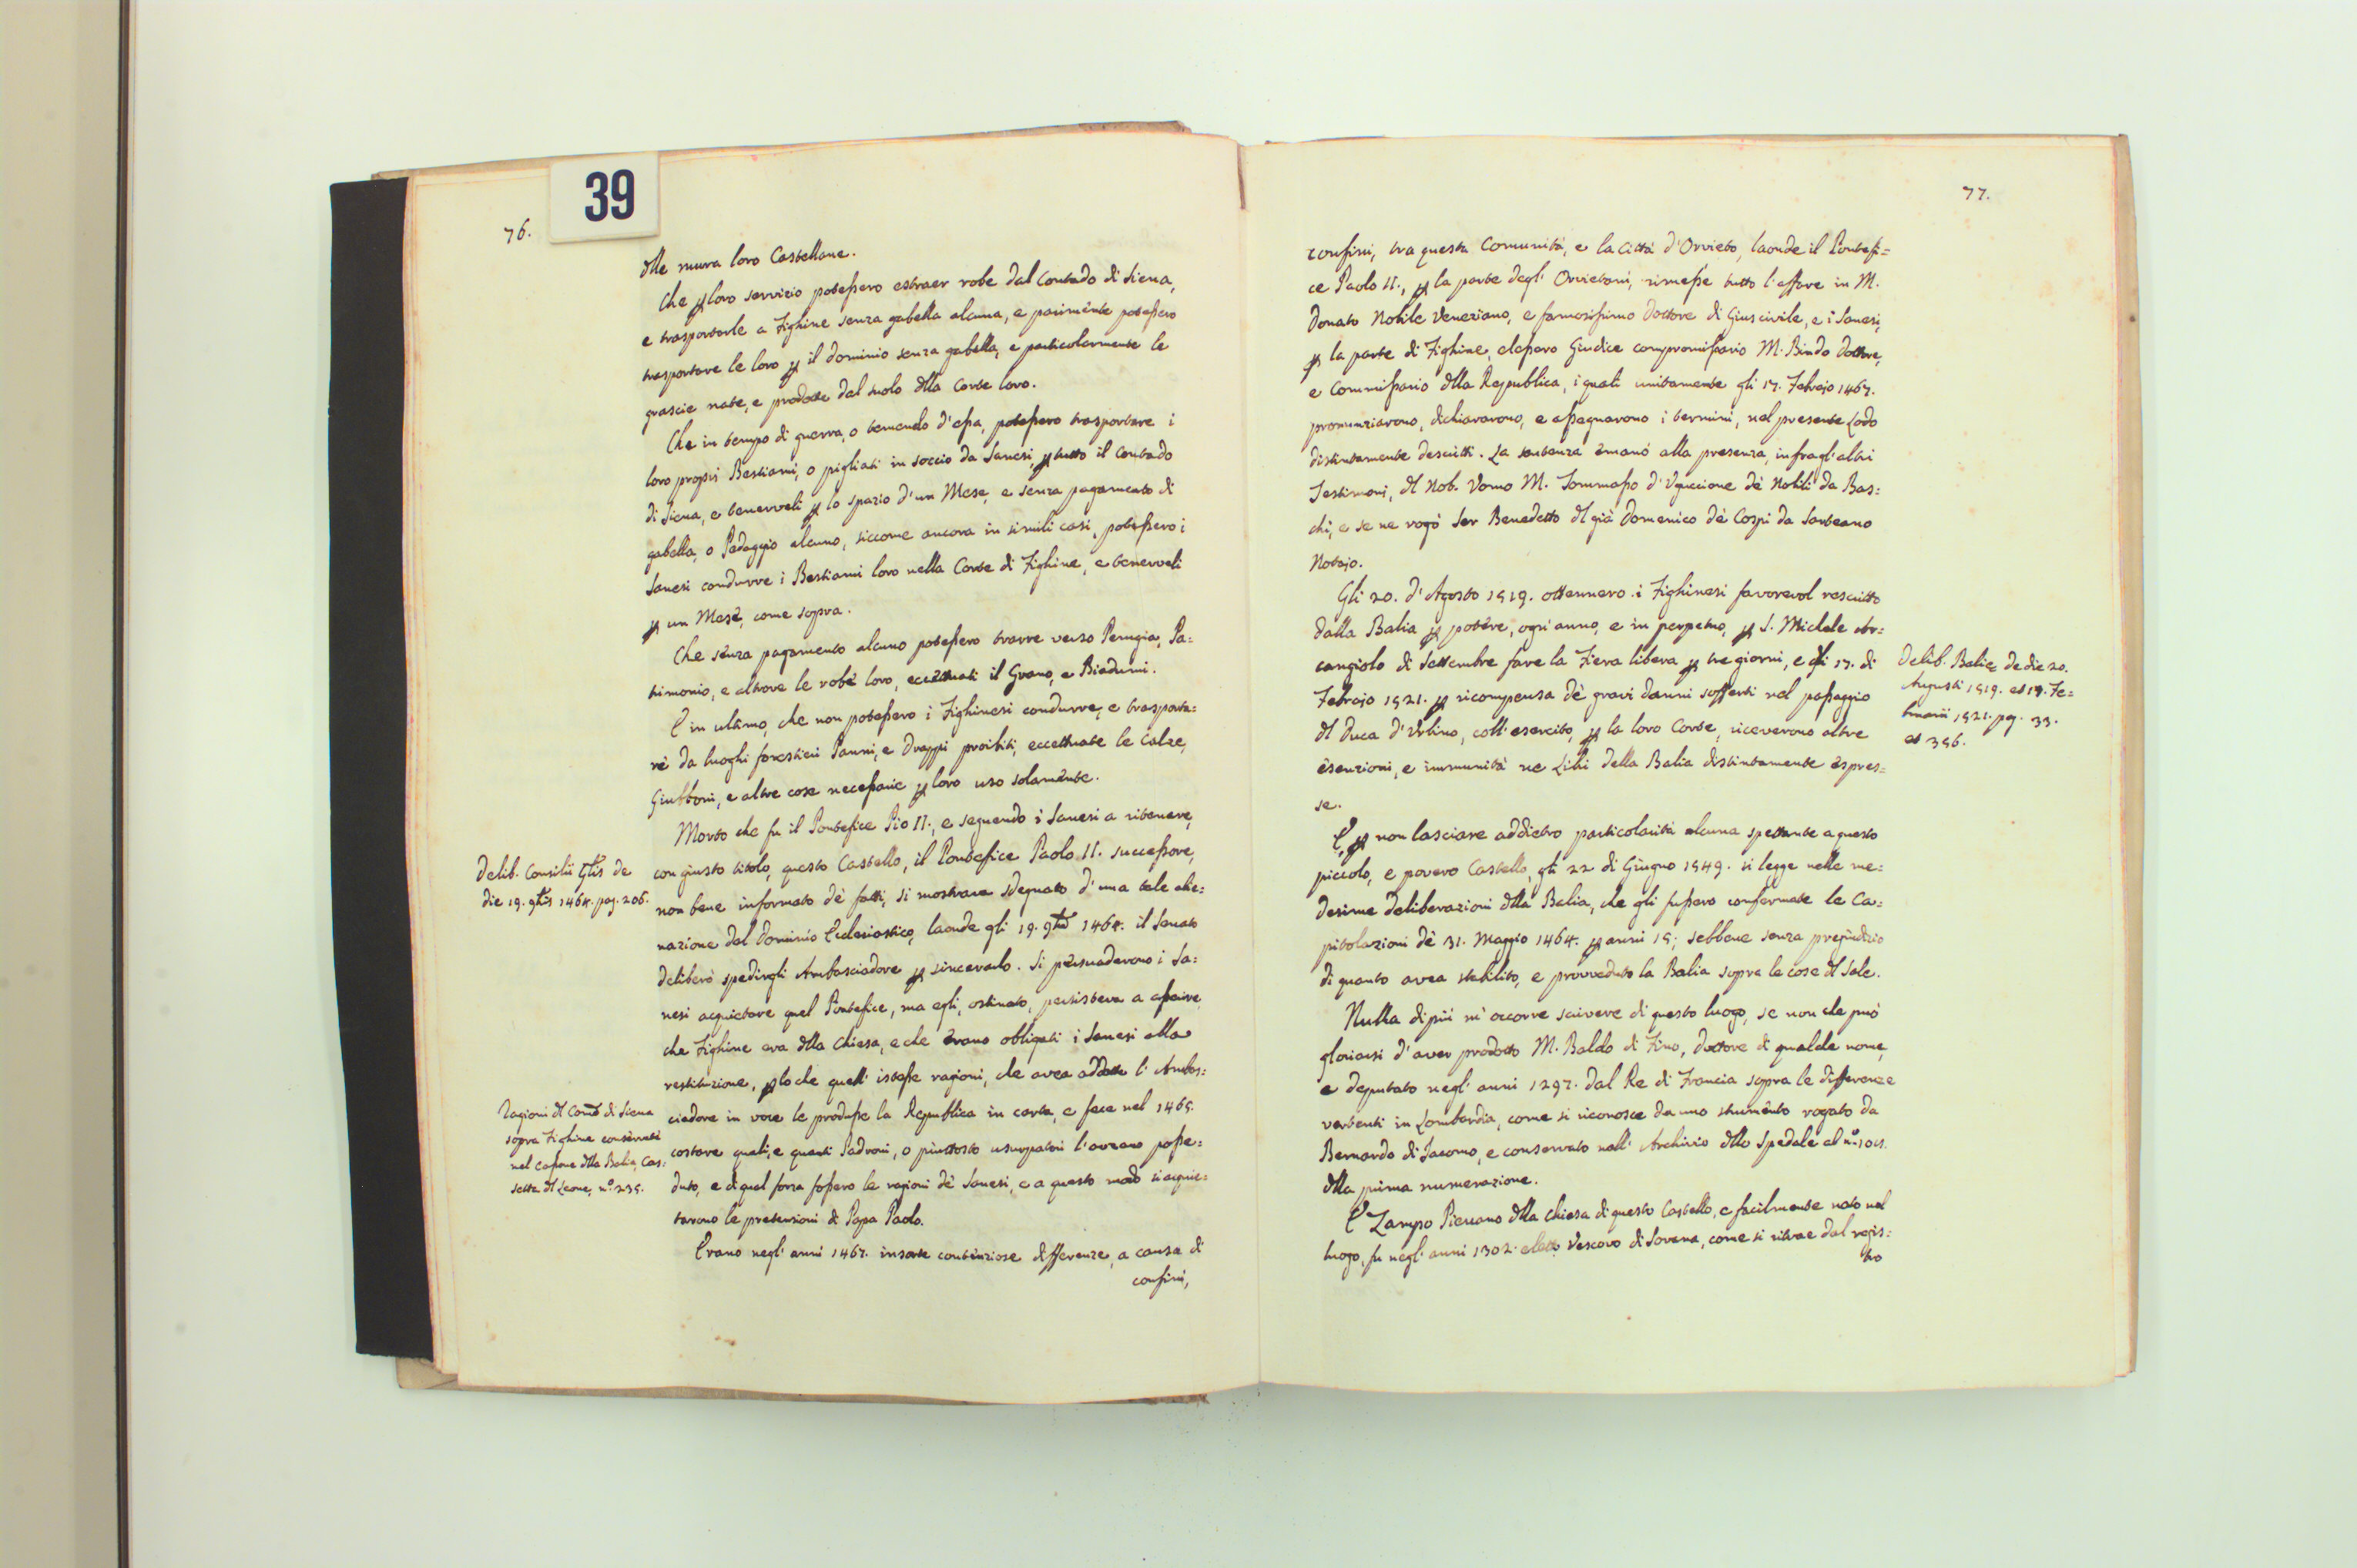 39
76.
dlle mura loro Castellane.
Che p loro servizio potessero estraer robe dal Contado di Siena,
e trasportarle a Fighine senza gabella alcuna, e parimente potessero
trasportare le loro p il dominio senza gabella, e particolarmente le
grascie nate, e prodotte dal suolo dlla Corte loro.
Che in tempo di guerra, o temendo d'essa, potessero trasportare i
loro proprj Bestiami, o pigliati in soccio da Sanesi, p tutto il Contado
di Siena, e tenerveli p lo spazio d'un Mese, e senza pagamento di
gabella, o Pedaggio alcuno, siccome ancora in simili casi, potessero i
Sanesi condurre i Bestiami loro nella Corte di Fighine, e tenerveli
p un Mese, come sopra.
Che senza pagamento alcuno potessero trarre verso Perugia, Pa=
trimonio, e altrove le robe loro, eccettuati il Grano, e Biadumi.
E in ultimo, che non potessero i Fighinesi condurre, e trasporta=
re da luoghi forestieri Panni, e Drappi proibiti, eccettuate le Calze,
Giubboni, e altre cose necessarie p loro uso solamente.
Morto che fu il Pontefice Pio II., e seguendo i Sanesi a ritenere,
con giusto titolo, questo Castello, il Pontefice Paolo II. successore,
non bene informato dè fatti, si mostrava sdegnato d'una tale alie=
nazione dal dominio Ecclesiastico, laonde gli 19. 9bre 1464. il Senato
deliberò spedirgli Ambasciadore p sincerarlo. Si persuaderono i Sa=
nesi acquietare quel Pontefice, ma egli, ostinato, persisteva a asserire
che Fighine era dlla Chiesa, e che erano obligati i Sanesi alla
restituzione, ploche quell' istesse ragioni, che avea addotte l'Ambas=
ciadore in voce le produsse la Republica in carta, e fece nel 1465.
costare quali, e quanti Padroni, o piuttosto usurpatori l'aveano posse=
duto, e di qual forza fossero le ragioni dè Sanesi, e a questo modo si acquie=
tarono le pretensioni di Papa Paolo.
Erano negl'anni 1467. insorte contenziose differenze, a causa di
confini,
Delib. Consilii Glis de
die 19. 9bris 1464. pag. 206.
Ragioni dl Comõ di Siena
sopra Fighine conservati
nel Cassone dlla Balia, Cas=
setta dl Leone, n.° 235.
77.
confini, tra questa Comunità, e la Città d'Orvieto, laonde il Pontefi=
ce Paolo II., p la parte degl' Orvietani, rimesse tutto l'affare in M.
Donato Nobile Veneziano, e famosissimo Dottore di Giuscivile, e i Sanesi,
p la parte di Fighine, elessero Giudice compromissario M. Bindo Dottore,
e Commissario dlla Republica, i quali unitamente gli 17. Febrajo 1467.
pronunziarono, dichiararono, e assegnarono i termini, nel presente Lodo
distintamente descritti. La sentenza emanò alla presenza, infragl'altri
Testimoni, dl Nob. Uomo M. Tommasso d'Uguccione dè Nobili da Bas=
chi, e se ne rogò Ser Benedetto dl già Domenico dè Cospi da Sarteano
Notajo.
Gli 20. d'Agosto 1519. ottennero i Fighinesi favorevol rescritto
dalla Balia p potere, ogni anno, e in perpetuo, p S. Michele Ar=
cangiolo di Settembre fare la Fiera libera p tre giorni, e gli 17. di
Febrajo 1521. p ricompensa dè gravi danni sofferti nel passaggio
dl Duca d'Urbino, coll'esercito, p la loro Corte, riceverono altre
esenzioni, e immunità ne Libri della Balia distintamente espres=
se.
E, p non lasciare addietro particolarità alcuna spettante a questo
piccolo, e povero Castello, gli 22 di Giugno 1549. si legge nelle me=
desime deliberazioni dlla Balia, che gli fussero confermate le Ca=
pitolazioni dè 31. Maggio 1464. p anni 15; sebbene senza pregiudizio
di quanto avea stabilito, e provveduto la Balia sopra le cose dl Sale.
Nulla di più m'occorre scrivere di questo luogo, se non che può
gloriarsi d'aver prodotto M. Baldo di Fino, Dottore di qualche nome,
e deputato negl'anni 1297. dal Re di Francia sopra le differenze
vertenti in Lombardia, come si riconosce da uno strumento rogato da
Bernardo di Jacomo, e conservato nell' Archivio dllo Spedale al n.° 1045.
dlla prima numerazione.
E Zampo Pievano dlla Chiesa di questo Castello, e facilmente nato nel
luogo, fu negl'anni 1302. eletto Vescovo di Sovana, come si ritrae dal regis=
tro
Delib. Baliæ de die 20.
Augusti 1519. et 17. Fe=
bruarii 1521. pag. 33.
et 356.